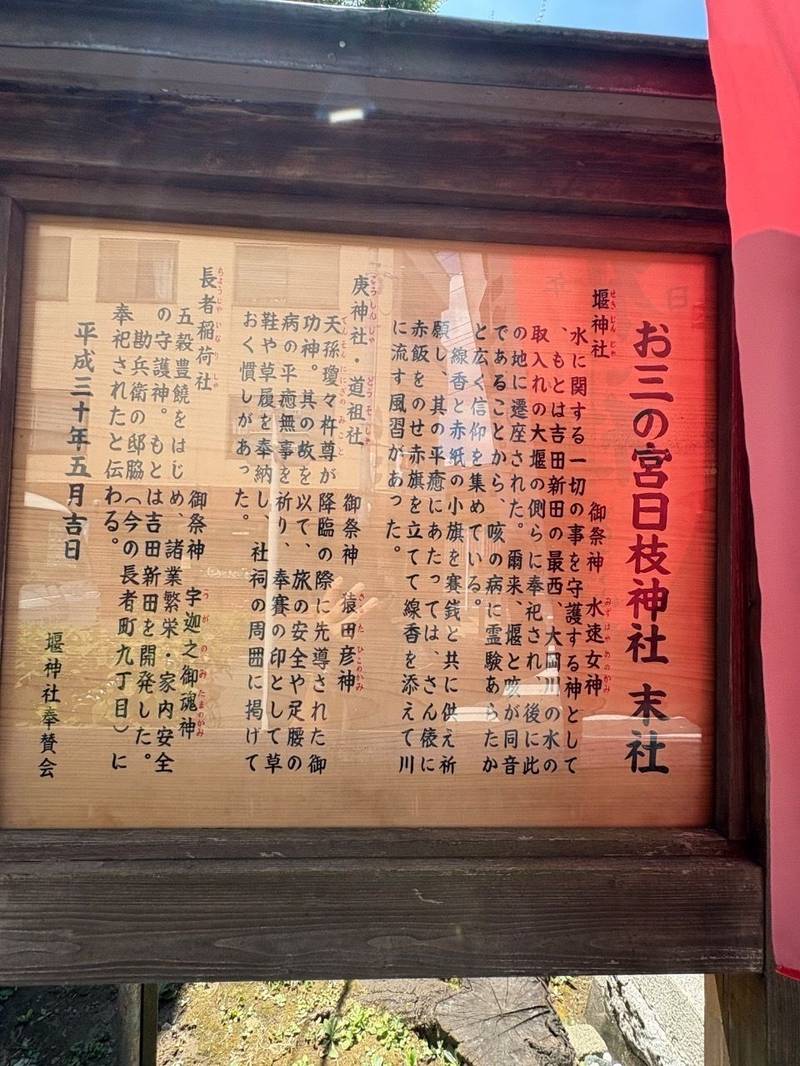 お三の宮日枝神社 末社
堰神社 御祭神 水速女神
せきじんじゃ みずはやめのかみ
水に関する一切の事を守護する神として
、もとは吉田新田の最西、大岡川の水の
取入れの大堰の側らに奉祀され、後に此
の地に遷座された。爾来、堰と咳が同音
であることから、咳の病に霊験あらたか
と広く信仰を集めている。
線香と赤紙の小旗を賽銭と共に供え祈
願し、其の平癒にあたっては、さん俵に
赤飯をのせ赤旗を立てて線香を添えて川
に流す風習があった。
庚神社・道祖社 御祭神 猿田彦神
こうしんしゃ どうそしゃ さるた ひこのかみ
天孫瓊々杵尊が降臨の際に先導された御
てんそんににぎのみこと
功神。其の故を以て、旅の安全や足腰の
病の平癒無事を祈り、奉賽の印として草
鞋や草履を奉納し、社祠の周囲に掲げて
おく慣しがあった。
長者稲荷社 御祭神 宇迦之御魂神
ちょうじゃいなりしゃ うがのみたまのかみ
五穀豊饒をはじめ、諸業繁栄・家内安全
の守護神。もとは吉田新田を開発した。
勘兵衛の邸脇（今の長者町九丁目）に
奉祀されたと伝わる。
平成三十年五月吉日
堰神社奉賛会